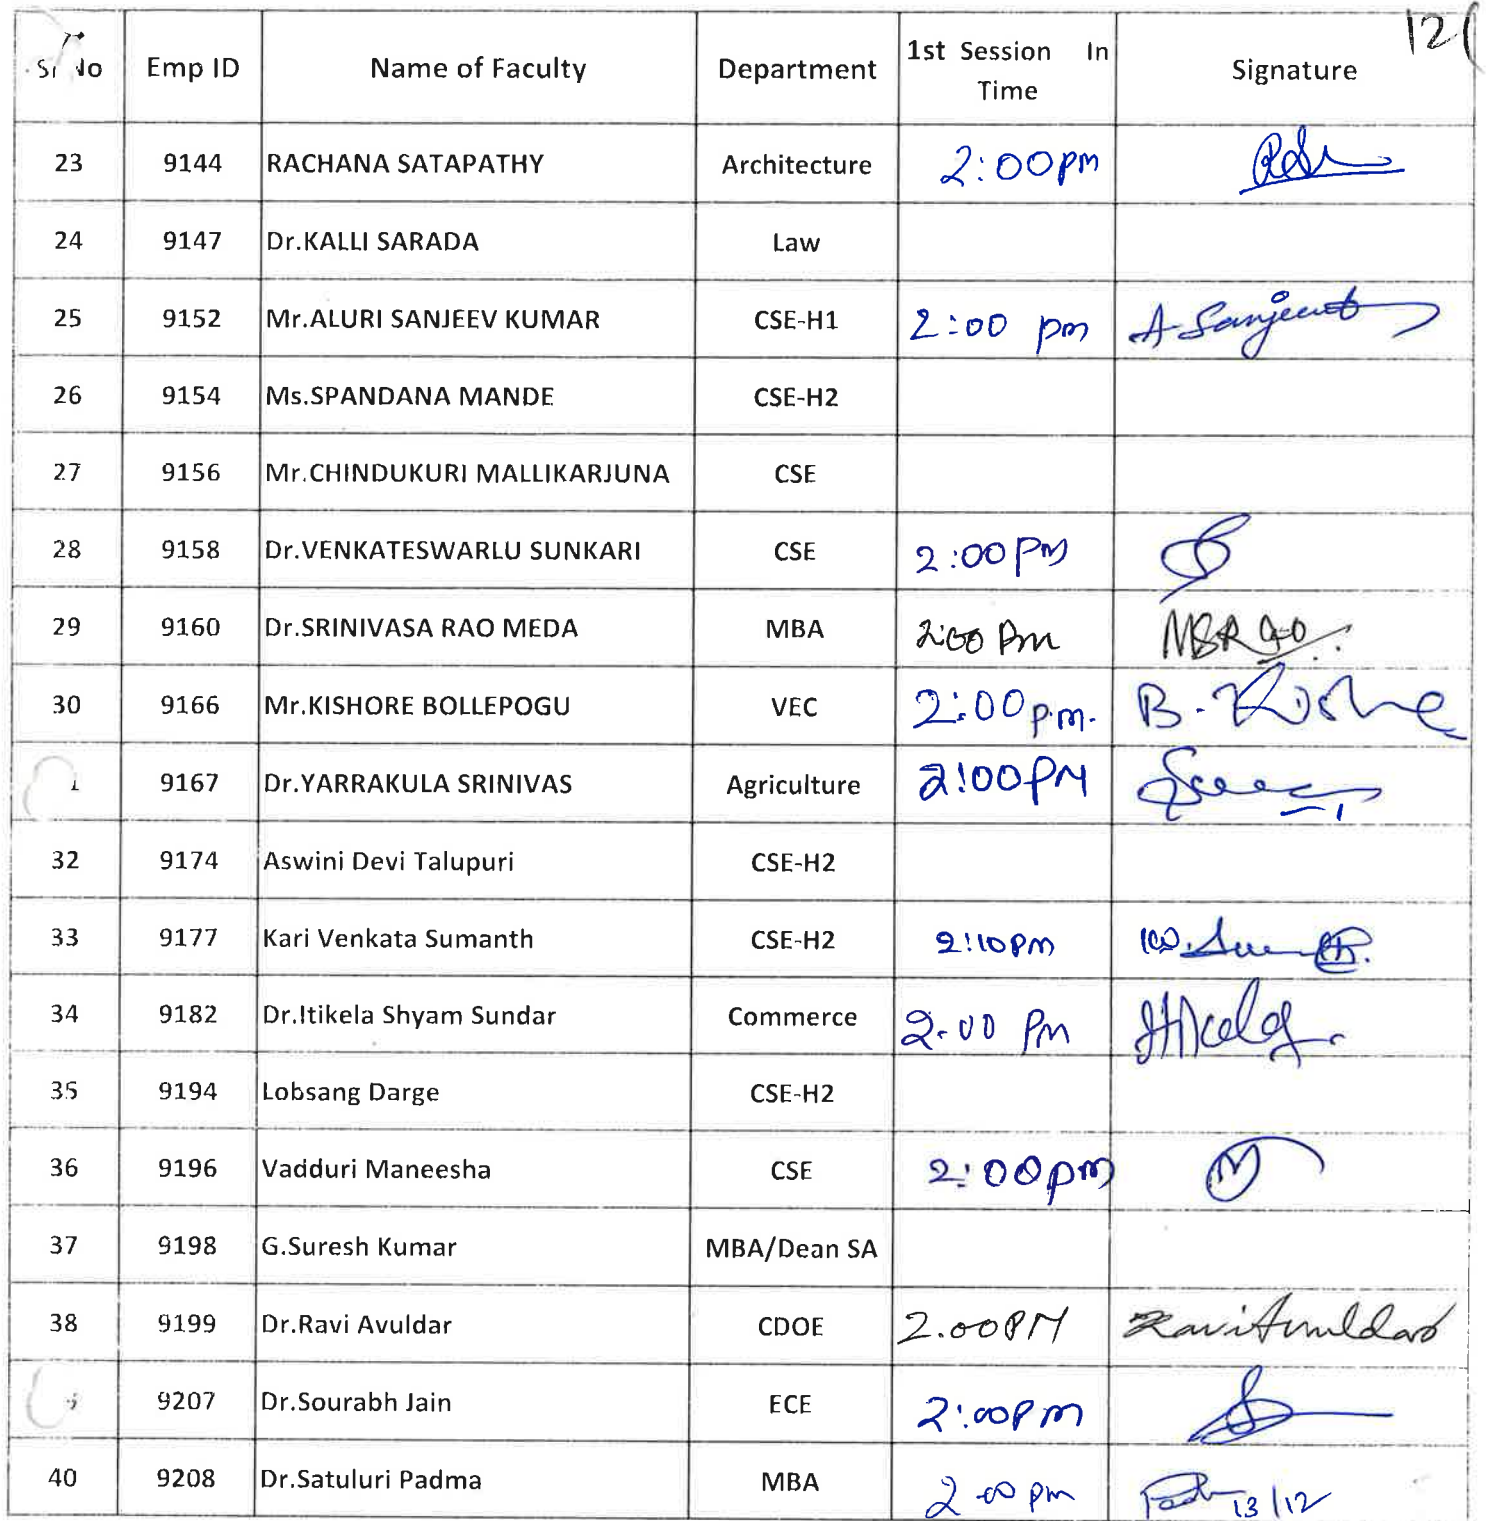 12(
Sr No Emp ID Name of Faculty Department 1st Session In Time Signature
23 9144 RACHANA SATAPATHY Architecture 2:00pm
24 9147 Dr.KALLI SARADA Law
25 9152 Mr.ALURI SANJEEV KUMAR CSE-H1 2:00 pm A. Sanjeev
26 9154 Ms.SPANDANA MANDE CSE-H2
27 9156 Mr.CHINDUKURI MALLIKARJUNA CSE
28 9158 Dr.VENKATESWARLU SUNKARI CSE 2:00 PM
29 9160 Dr.SRINIVASA RAO MEDA MBA 2:00 Pm MSRao
30 9166 Mr.KISHORE BOLLEPOGU VEC 2:00 p.m. B. Kishore
1 9167 Dr.YARRAKULA SRINIVAS Agriculture 2:00PM
32 9174 Aswini Devi Talupuri CSE-H2
33 9177 Kari Venkata Sumanth CSE-H2 2:10pm
34 9182 Dr.Itikela Shyam Sundar Commerce 2.00 Pm Itikela
35 9194 Lobsang Darge CSE-H2
36 9196 Vadduri Maneesha CSE 2:00pm M
37 9198 G.Suresh Kumar MBA/Dean SA
38 9199 Dr.Ravi Avuldar CDOE 2.00PM Ravi Avuldar
9207 Dr.Sourabh Jain ECE 2:00pm
40 9208 Dr.Satuluri Padma MBA 2.00 pm 13/12